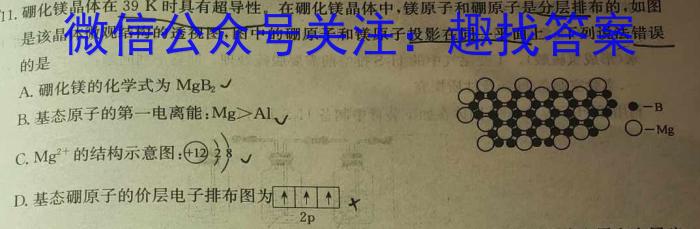 11. 硼化镁晶体在 39 K 时具有超导性。在硼化镁晶体中,镁原子和硼原子是分层排布的,如图
是该晶体微观结构的透视图,图中的硼原子和镁原子投影在同一平面上。下列说法错误
微信公众号关注：趣找答案
的是
A. 硼化镁的化学式为 MgB₂ ✓
B. 基态原子的第一电离能:Mg>Al ✓
C. Mg²⁺ 的结构示意图: +12 2 8 ✓
D. 基态硼原子的价层电子排布图为 ↑ ↑ ↑ ×
2p
●—B
○—Mg